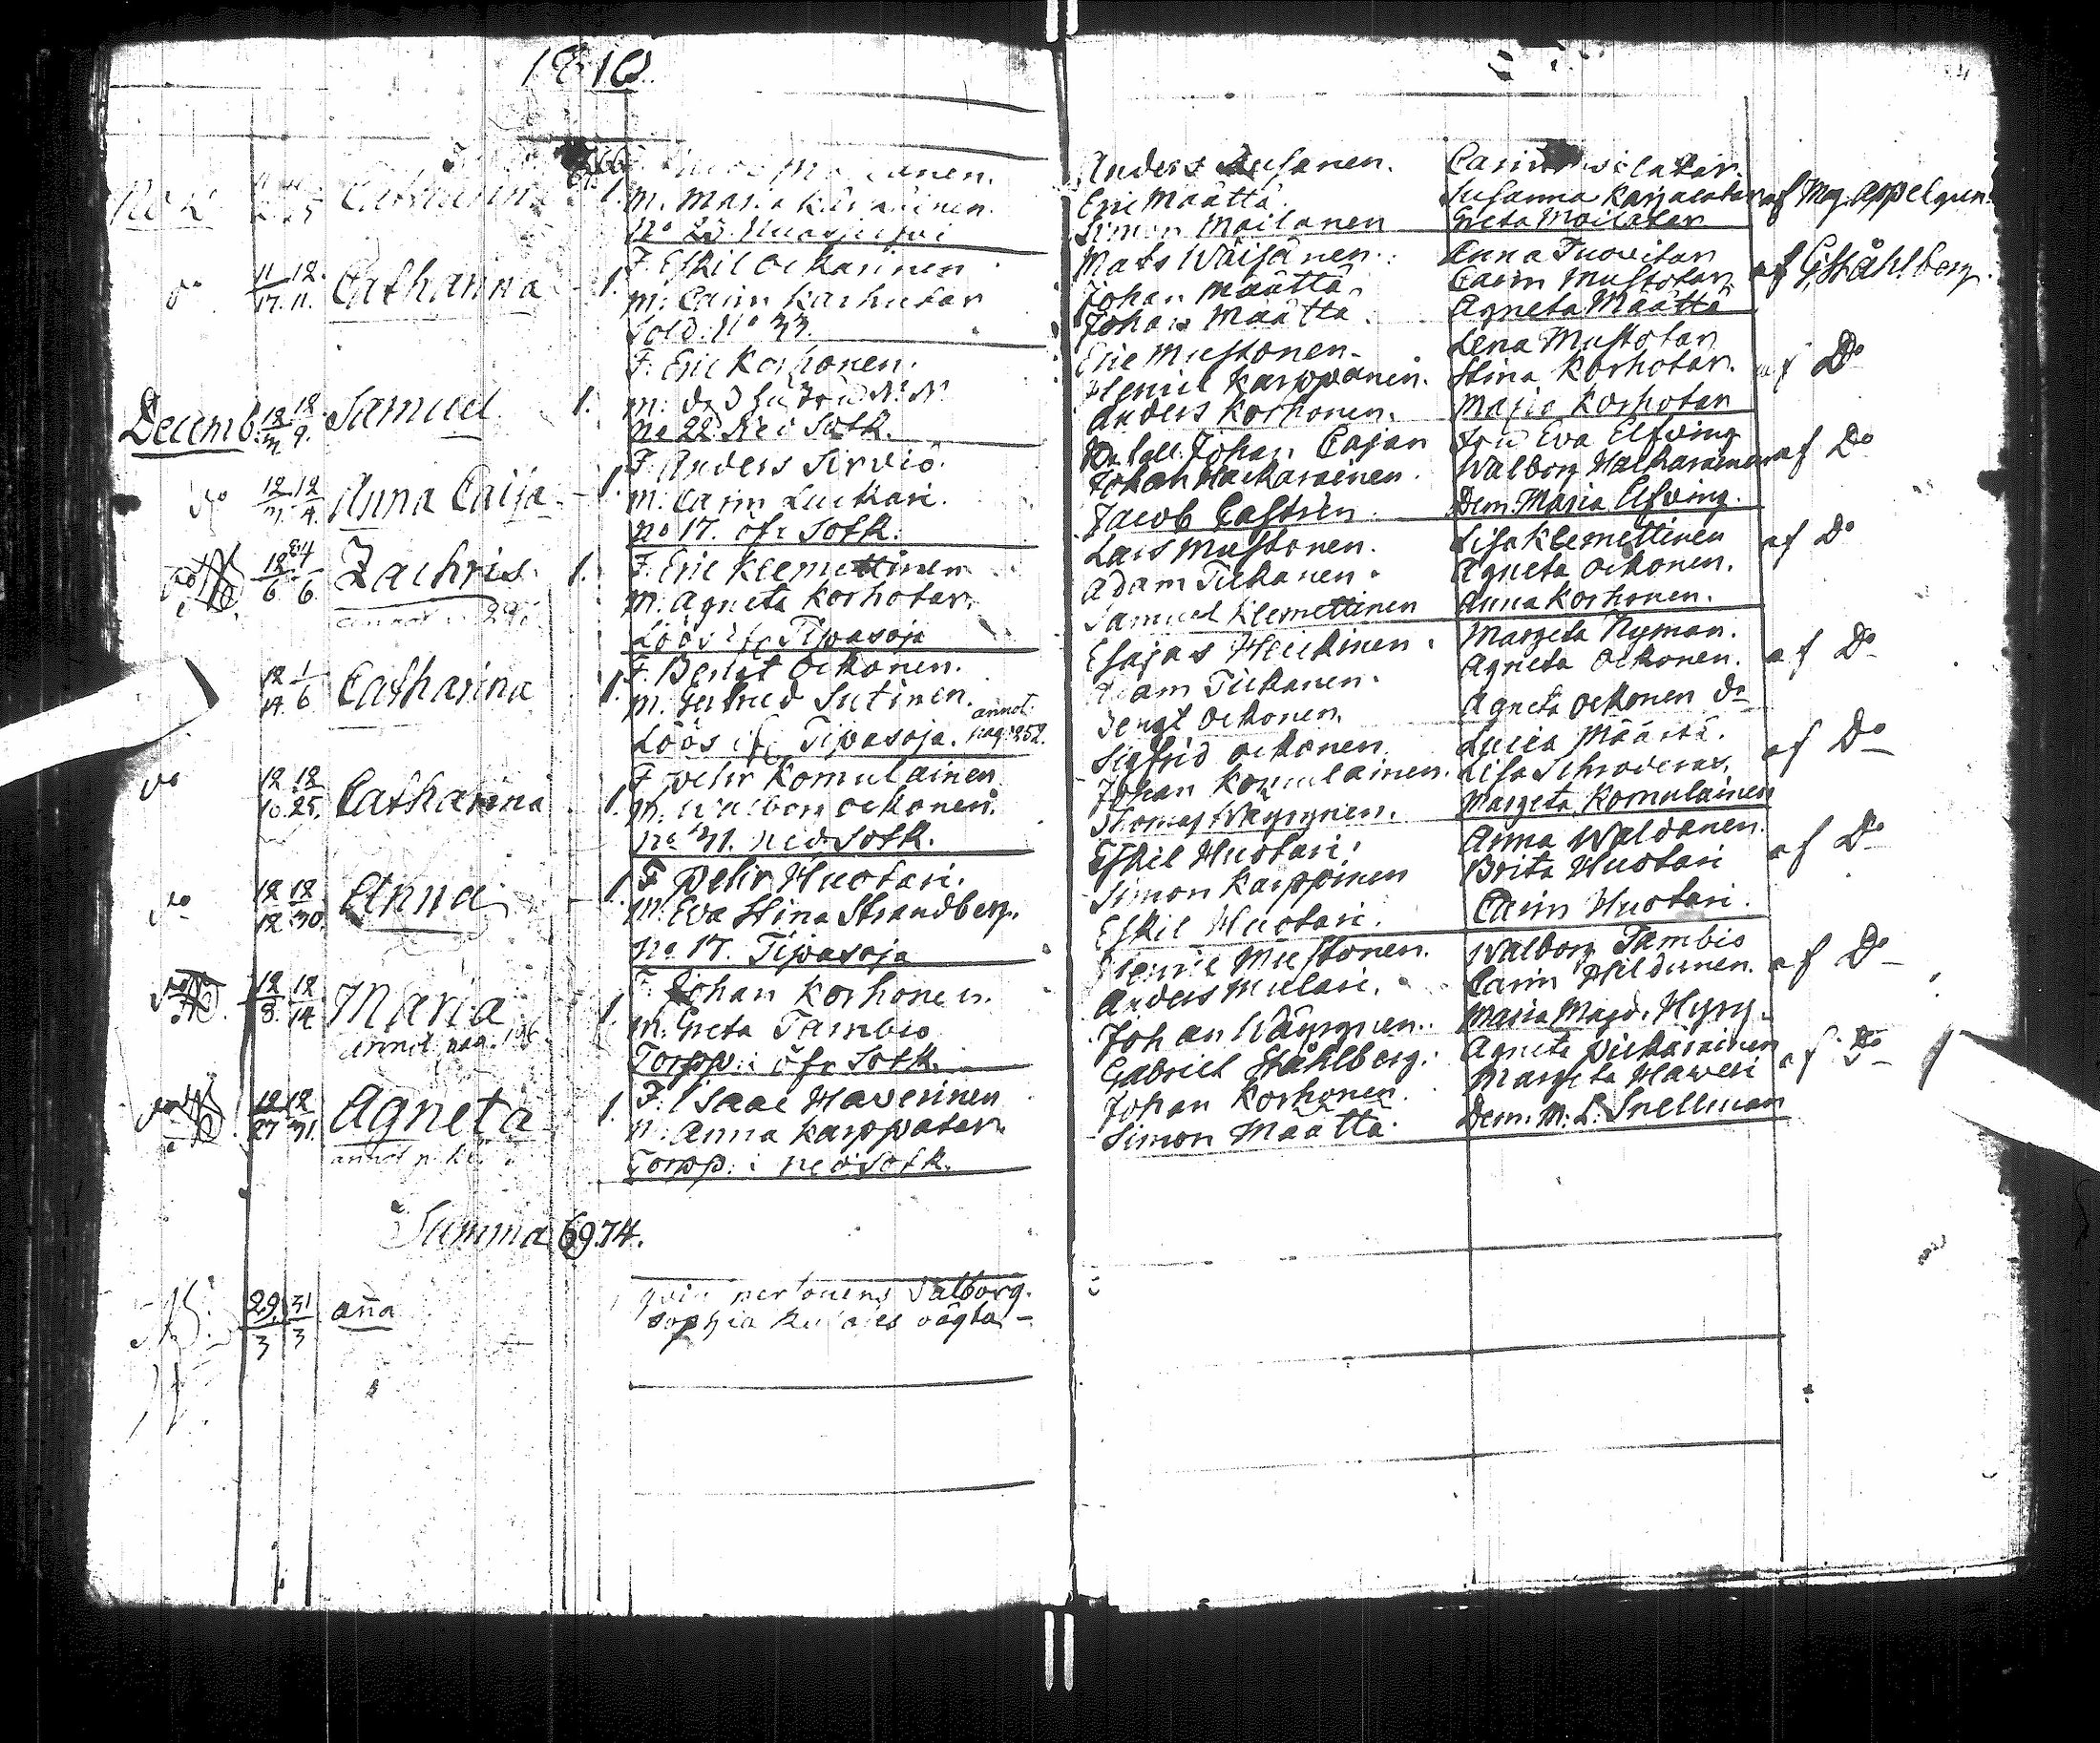 1810
Catharina 1.
m. Maria
No 23.
Anders
Eric Määttä.
Simon Moilanen
Susanna Karjalatar
Greta Moilatar
af Mag. Appelgren.
do 11/17. 12./11. Catharina 1.
F. Eskil Ockarinen
m. Carin Karhutar
Sold: No 33.
Mats Wäisänen.
Johan Määttä
Johan Määttä.
Anna Tuovitar
Carin Mustotar
Agneta Määttä
af G. Ståhlberg.
Decemb. 12/3 12./9. Samuel 1.
F. Eric Korhonen.
m.
No 22. Ned Sotk.
Eric Mustonen.
Henric Karppanen.
Anders Korhonen.
Lena Mustotar
Stina Korhotar.
Maria Korhotar
af Do
do 12/3. 12/4. Anna Caisa 1.
F. Anders Sirviö.
m. Carin Luckari.
No 17. öfr Sotk.
Johan Cajan
Johan Hackarainen.
Jacob Castrén.
Fru Eva Elfving
Walborg Hackarainen
Dem. Maria Elfving.
af Do
do 12/6 /6. Zachris. 1.
F. Eric Klemettinen
m. Agneta Korhotar.
Löös if Tipasoja
Lars Mustonen.
Adam Tickanen.
Samuel Klemettinen
Lisa Klemettinen
Agneta Ockonen.
Anna Korhonen.
af Do
12/14. 1/6 Catharina 1.
F. Bengt Ockonen.
m. Gertrud Sutinen.
Löös if Tipasoja. annot. pag: 252.
Esajas Heickinen.
Adam Tickanen.
Bengt Ockonen.
Margeta Nyman.
Agneta Ockonen.
Agneta Ockonen do
af Do
do 12/10. 12/25. Catharina 1.
F. Pehr Komulainen
m. Walborg Ockonen.
No 31. ned Sotk.
Sigfrid Ockonen.
Johan Komulainen.
Thomas Wäyrynen.
Lucia Määttä.
Lisa Schroderus.
Margeta Komulainen
af Do
do 12/12 12/30. Anna 1.
F. Pehr Huotari.
m. Eva Stina Strandberg.
No 17. Tipasoja
Eskil Huotari.
Simon Karppinen
Eskil Huotari.
Anna Waldanen.
Brita Huotari
Carin Huotari.
af Do
12/8. 12/14 Maria 1.
annot pag. 196.
F. Johan Korhonen.
m. Greta Tambio
Torpp: i öfr Sotk.
Henric Mustonen.
Anders Mulari.
Johan Wäyrynen.
Walborg Tambio
Carin Hildunen.
Maria Magd. Hyry.
af Do
12/27 12/31. Agneta 1.
F. Isaac Haverinen
m. Anna Karppatar
Torpp: i ned Sotk.
Gabriel Ståhlberg.
Johan Korhonen.
Simon Määttä.
Agneta Pickarainen
Margeta Haveri
Dem. M. L. Snellman
af Do
Summa 69.74.
29./3 31/3 aña
Walborg.
Sophia